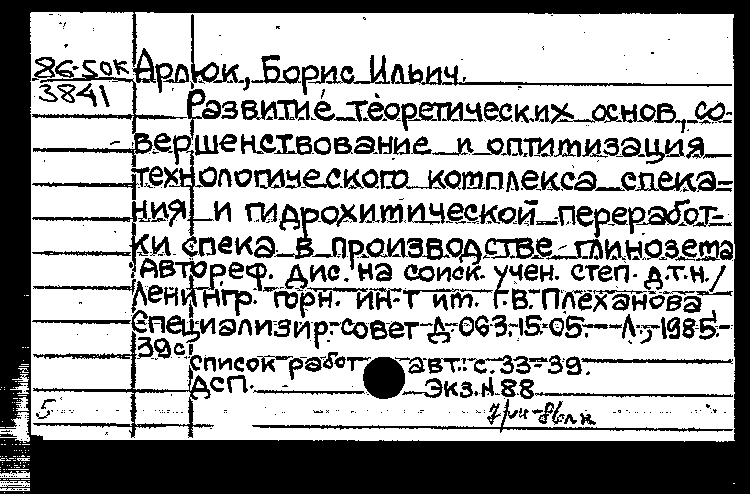 86-50к Арлюк, Борис Ильич.
3841
Развитие теоретических основ, со-
вершенствование и оптимизация
технологического комплекса спека-
ния и гидрохимической переработ-
ки спека в производстве глинозема
Автореф. дис. на соиск. учен. степ. д.т.н./
Ленингр. горн. ин-т им. Г.В. Плеханова
Специализир. совет Д-063.15.05. - Л., 1985.-
39с.
список работ авт.: с. 33-39.
ДСП. Экз. N 88
5